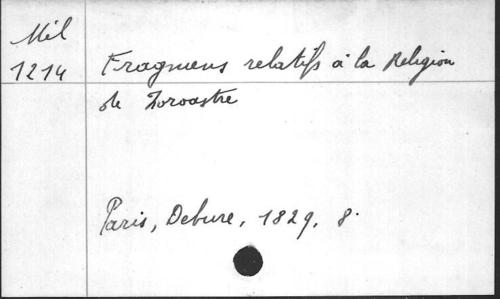 Mél
1214
Fragmens relatifs à la Religion
de Zoroastre
Paris, Debure, 1829. 8.